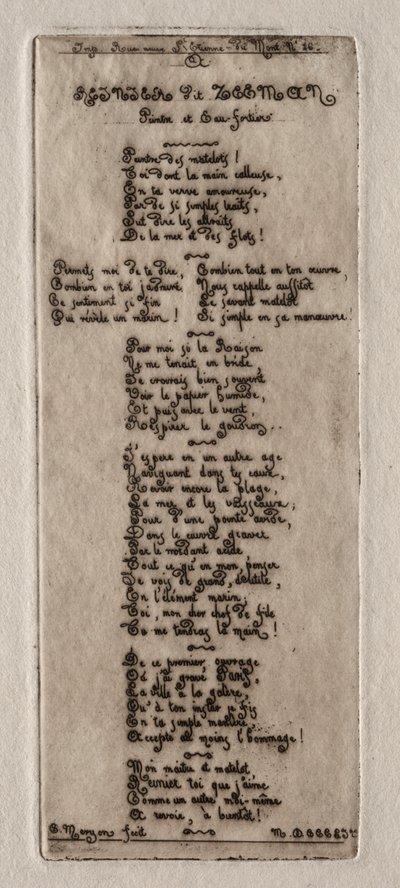 Imp. Rue neuve St Etienne-du-Mont No 26.
A
REINIER dit ZEEMAN
Peintre et Eau-fortier.
Peintre des matelots !
Toi dont la main calleuse,
En ta verve amoureuse,
Par de si simples traits,
Sut dire les attraits
De la mer et des flots !
Permets moi de te dire,
Combien en toi j'admire
Ce sentiment si fin
Qui révèle un marin !
Combien tout en ton œuvre,
Nous rappelle aussitôt
Le savant matelot
Si simple en sa manœuvre !
Pour moi si la Raison
Ne me tenait en bride,
Je croirais bien souvent
Voir le papier humide,
Et puis avec le vent,
Respirer le goudron..
J'espère en un autre age
Naviguant dans tes eaux,
Revoir encore la plage,
La mer et les vaisseaux ;
Pour d'une pointe avide,
Dans le cuivre graver
Par le mordant acide,
Tout ce qu'en mon penser
Je vois de grand,
En l'élément marin ;
Toi, mon cher chef de file
Tu me tendras la main !
De ce premier, ouvrage
Où j'ai gravé Paris,
La ville à la galère,
Qu'à ton instar je fis
En ta simple manière,
Accepte au moins l'hommage !
Mon maitre et matelot
Reinier toi que j'aime
Comme un autre moi-même
A revoir, à bientôt !
C. Meryon fecit